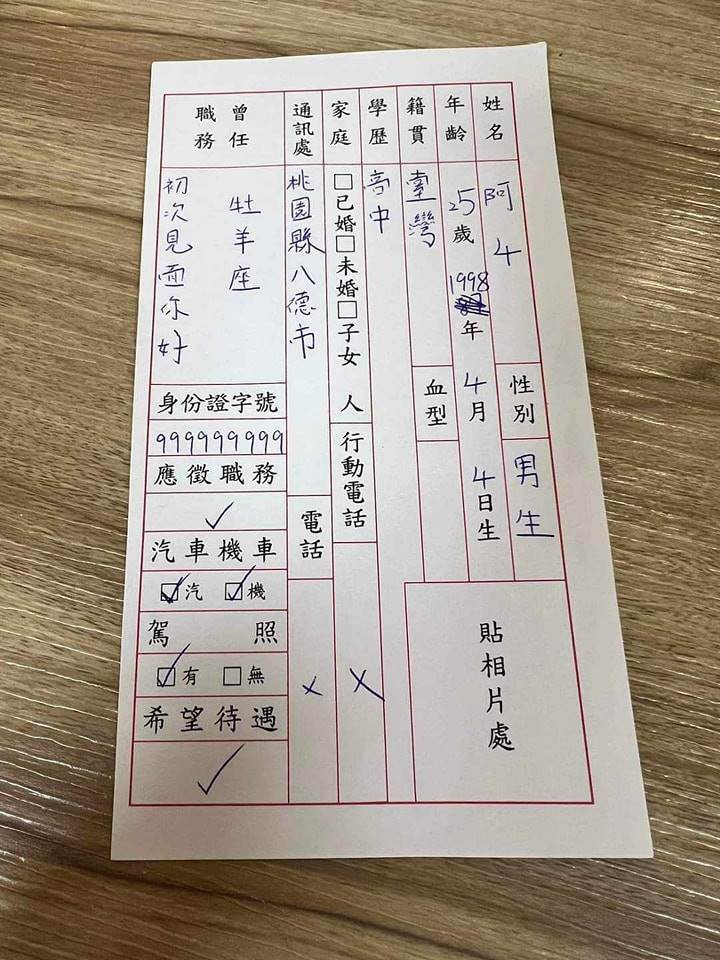 姓名
阿4
性別
男生
年齡
25歲
1998年
4月
4日生
籍貫
臺灣
血型
貼相片處
學歷
高中
家庭
□已婚□未婚□子女 人
行動電話
X
通訊處
桃園縣八德市
電話
X
曾任職務
牡羊座
初次見面你好
身份證字號
999999999
應徵職務
✓
汽車機車
☑汽 ☑機
駕照
☑有 □無
希望待遇
✓